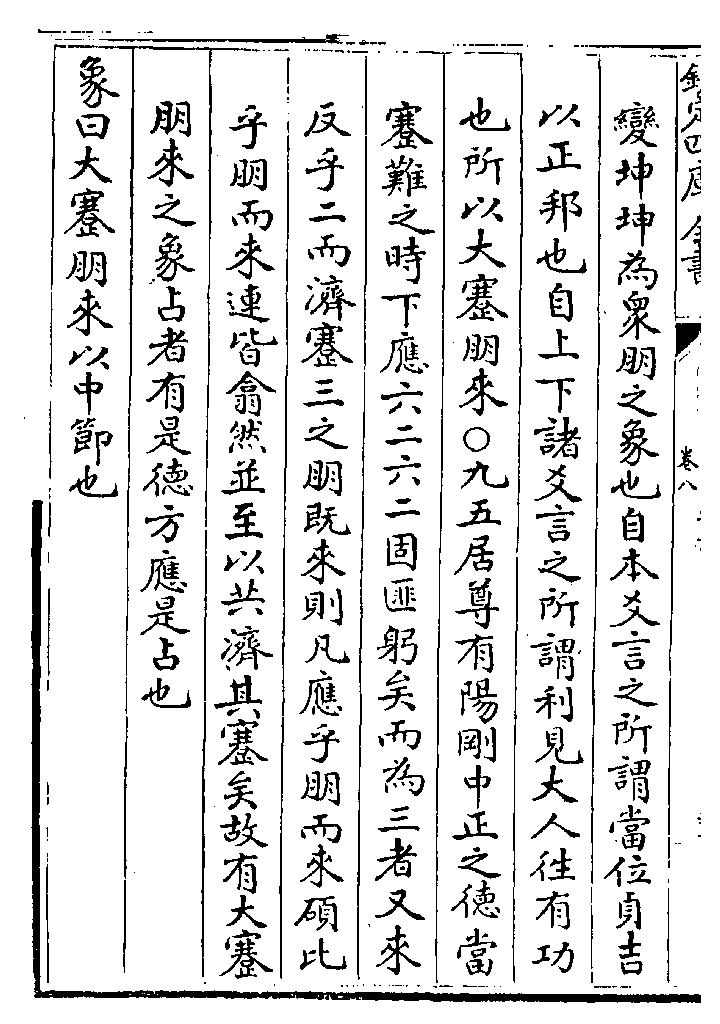 欽定四庫全書
卷八
變坤坤為衆朋之象也自本爻言之所謂當位貞吉
以正邦也自上下諸爻言之所謂利見大人徃有功
也所以大蹇朋來○九五居尊有陽剛中正之德當
蹇難之時下應六二六二固匪躬矣而為三者又來
反乎二而濟蹇三之朋既來則凡應乎朋而來碩比
乎朋而來連皆翕然並至以共濟其蹇矣故有大蹇
朋來之象占者有是德方應是占也
象曰大蹇朋來以中節也